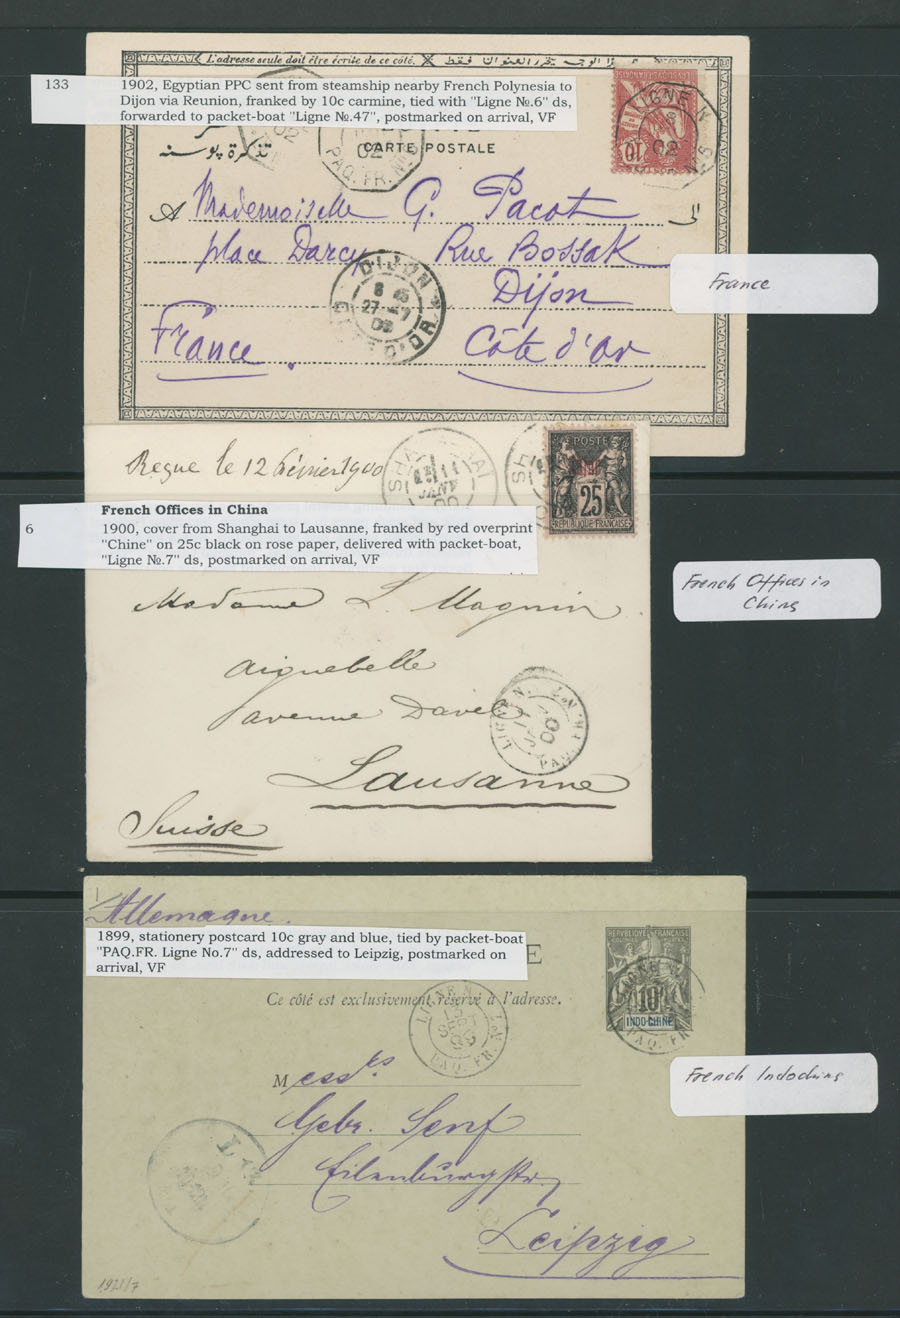 L'adresse seule doit être écrite de ce côté.
133
1902, Egyptian PPC sent from steamship nearby French Polynesia to
Dijon via Reunion, franked by 10c carmine, tied with "Ligne №.6" ds,
forwarded to packet-boat "Ligne №.47", postmarked on arrival, VF
LIGNE N
02
PAQ. FR. Nº
CARTE POSTALE
تذكرة بوسته
10
A Mademoiselle G. Pacot
الى
place Darcy Rue Bossak
DIJON
Dijon
France
CÔTE D'OR
France. Côte d'Or
Reçue le 12 février 1900
SHANGHAI
11
JANV
00
POSTE
Chine
25
REPUBLIQUE FRANÇAISE
French Offices in China
6
1900, cover from Shanghai to Lausanne, franked by red overprint
"Chine" on 25c black on rose paper, delivered with packet-boat,
"Ligne №.7" ds, postmarked on arrival, VF
French Offices in
China
Madame L. Magnin
Aiguebelle
avenue Davel
LIGNE N
PAQ. FR. Nº 7
00
Lausanne
Suisse
Allemagne.
1899, stationery postcard 10c gray and blue, tied by packet-boat
"PAQ.FR. Ligne No.7" ds, addressed to Leipzig, postmarked on
arrival, VF
E
REPUBLIQUE FRANÇAISE
10
INDO-CHINE
Ce côté est exclusivement réservé à l'adresse.
LIGNE N
SEPT
99
PAQ. FR. Nº 7
French Indochina
Messrs
Gebr. Senf
Eilenburgstr.
Leipzig
1921/7